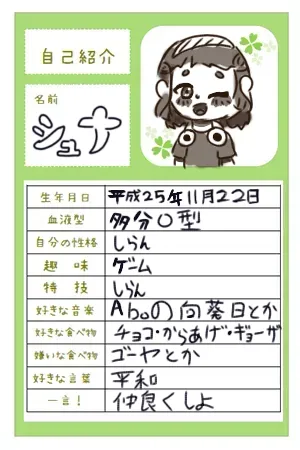 自己紹介
名前
シュナ
生年月日 平成25年11月22日
血液型 多分O型
自分の性格 しらん
趣味 ゲーム
特技 しらん
好きな音楽 Adoの向葵日とか
好きな食べ物 チョコ・からあげ・ギョーザ
嫌いな食べ物 ゴーヤとか
好きな言葉 平和
一言! 仲良くしよ